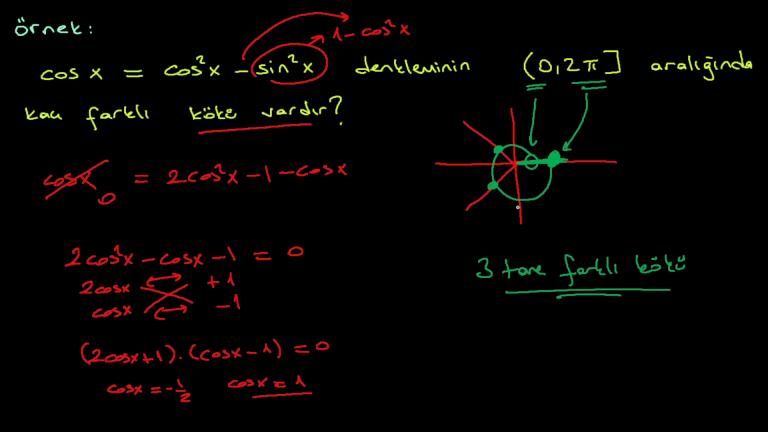 örnek:
1 - cos²x
cos x = cos²x - sin²x denkleminin (0, 2π] aralığında
kaç farklı kökü vardır?
cosx 0 = 2cos²x - 1 - cosx
2cos²x - cosx - 1 = 0
2cosx +1
cosx -1
(2cosx+1).(cosx-1) = 0
cosx = -1/2 cosx = 1
3 tane farklı kökü